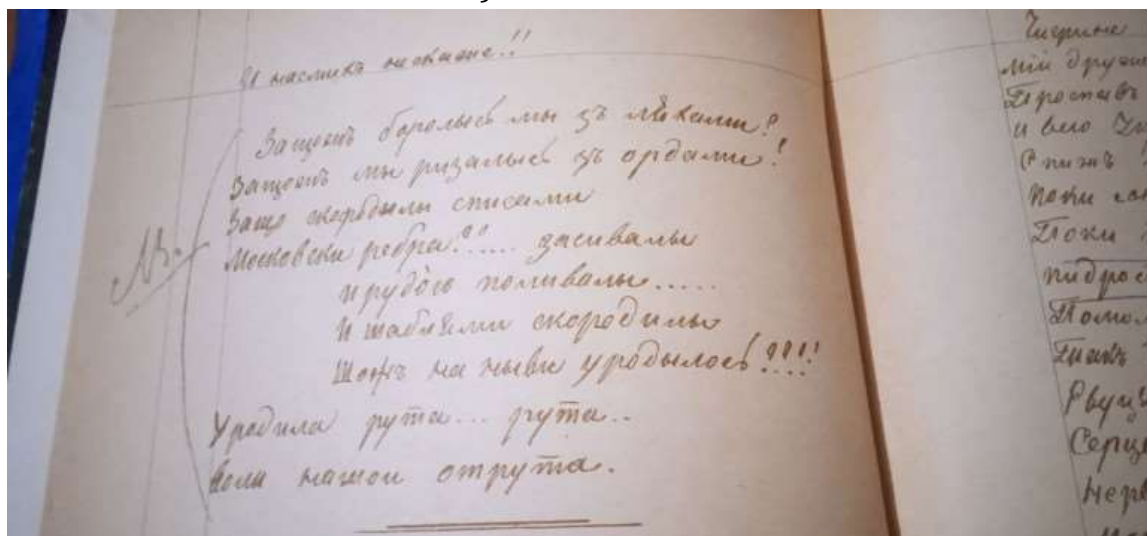 И насмихъ не стане!!
Защожъ боролысь мы зъ ляхами?
Защожъ мы ризалысь зъ ордами!
Защо скородылы списами
NB.
Московски ребра??.... засивалы
И рудою поливалы.....
И шаблями скородилы
Щожъ на ныви уродылось???!
Уродила рута... рута..
Воли нашои отрута.
Чигрине
Проспавъ
Спижъ
Поки
Поки
пидрос
Помо
Серце